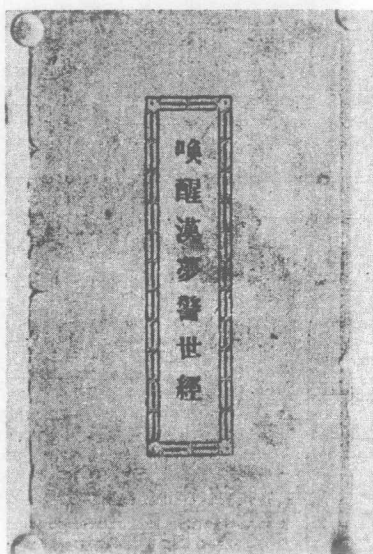 喚醒漢夢警世經